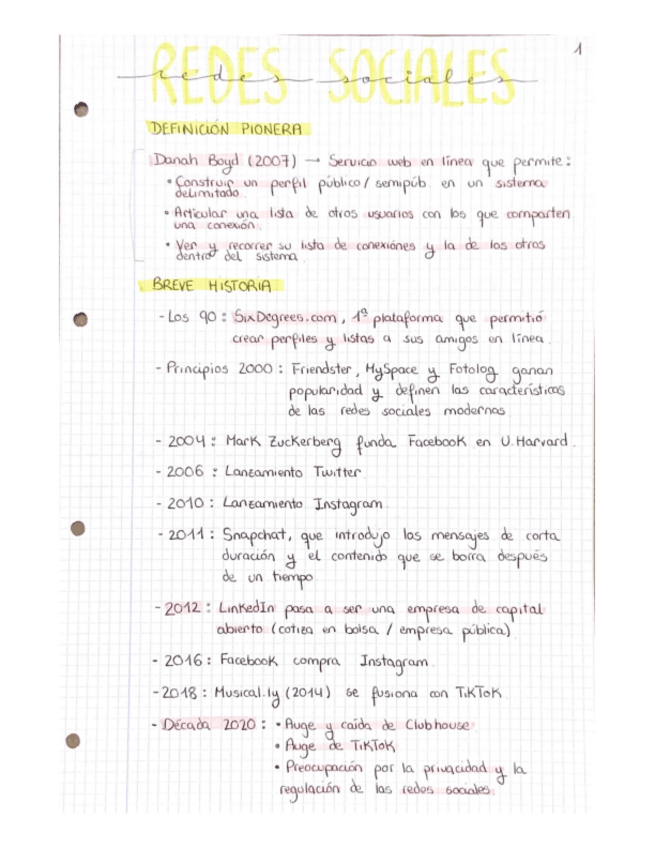 1
REDES SOCIALES
redes sociales
DEFINICIÓN PIONERA
Danah Boyd (2007) → Servicio web en línea que permite:
• Construir un perfil público / semipúb. en un sistema
delimitado.
• Articular una lista de otros usuarios con los que comparten
una conexión.
• Ver y recorrer su lista de conexiónes y la de los otros
dentro del sistema.
BREVE HISTORIA
- Los 90: SixDegrees.com, 1ª plataforma que permitió
crear perfiles y listas a sus amigos en línea.
- Principios 2000: Friendster, MySpace y Fotolog ganan
popularidad y definen las características
de las redes sociales modernas
- 2004: Mark Zuckerberg funda Facebook en U. Harvard.
- 2006: Lanzamiento Twitter
- 2010: Lanzamiento Instagram
- 2011: Snapchat, que introdujo los mensajes de corta
duración y el contenido que se borra después
de un tiempo
- 2012: LinkedIn pasa a ser una empresa de capital
abierto (cotiza en bolsa / empresa pública)
- 2016: Facebook compra Instagram.
- 2018: Musical.ly (2014) se fusiona con TikTok
- Década 2020: • Auge y caída de Clubhouse.
• Auge de TikTok
• Preocupación por la privacidad y la
regulación de las redes sociales.